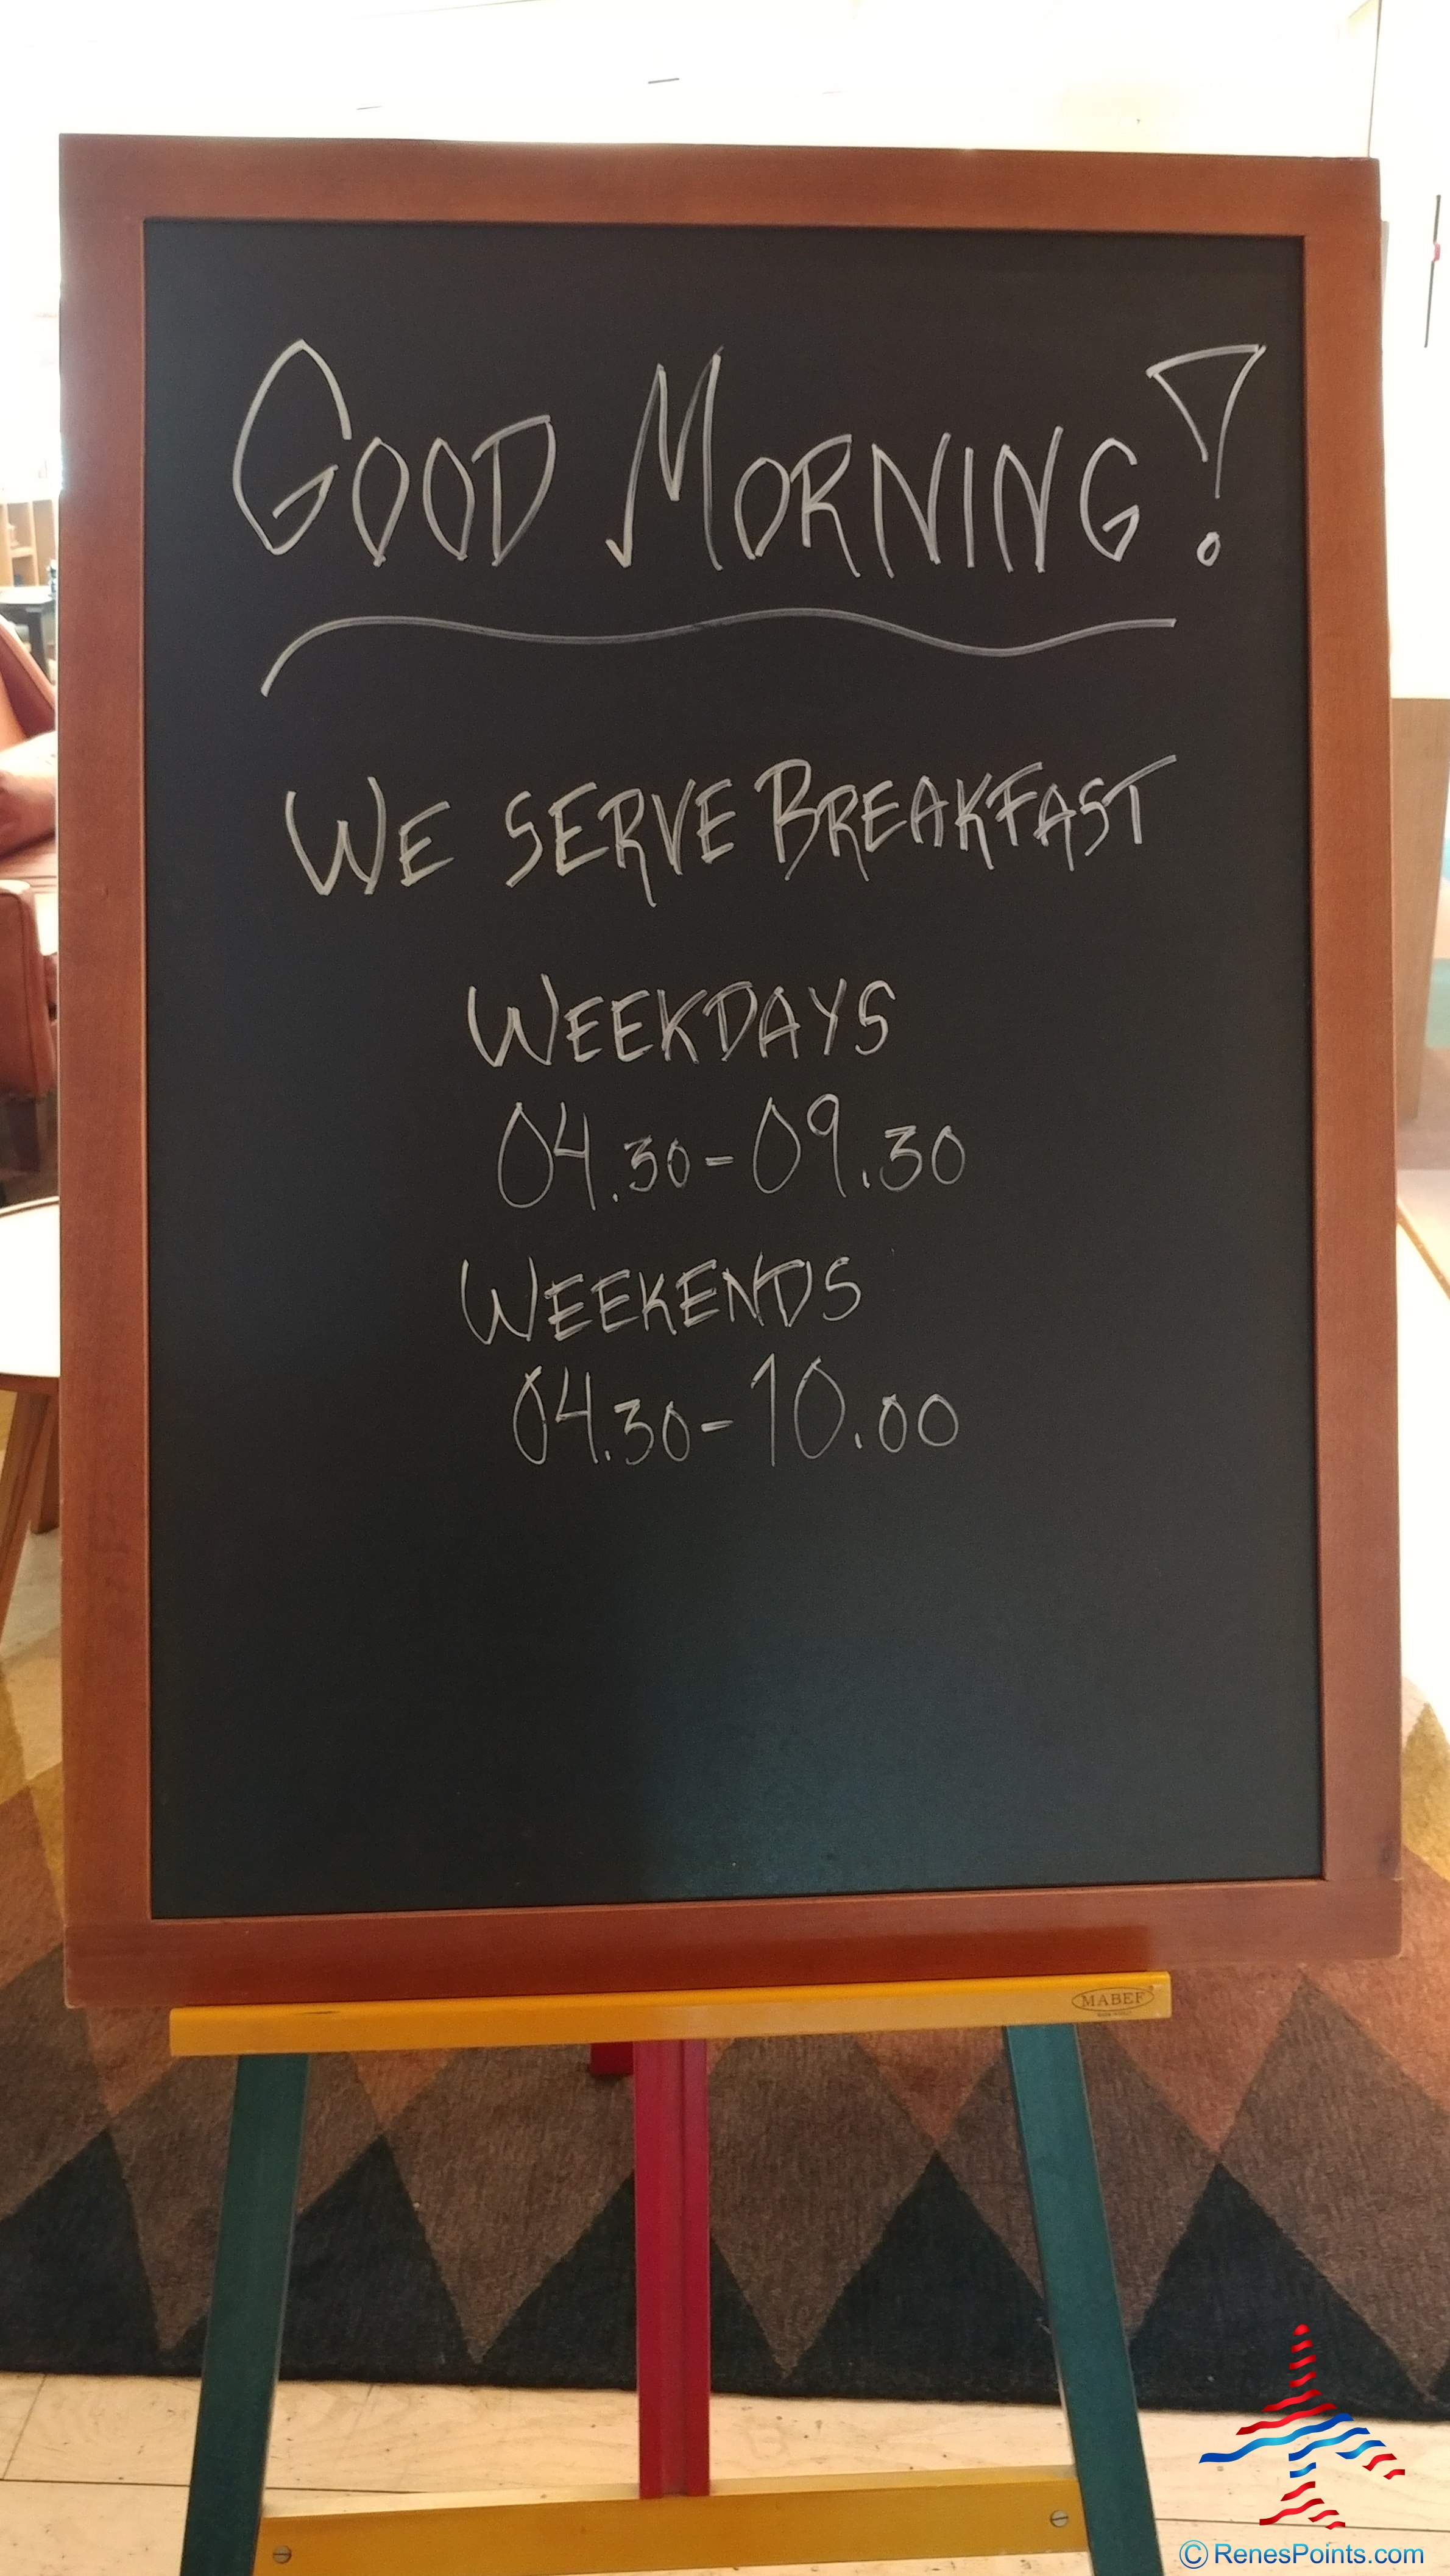 GOOD MORNING!
WE SERVE BREAKFAST
WEEKDAYS
04.30-09.30
WEEKENDS
04.30-10.00
MABEF
© RenesPoints.com